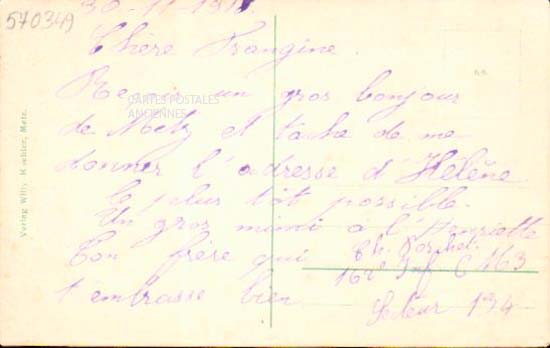 57034A
30-11-191
Chère Frangine.
Reçois un gros bonjour
CARTES POSTALES
ANCIENNES
de Metz et tache de me
donner l'adresse d'Helène
le plus tôt possible.
Un gros mimi à l'Henriette
Ton frère qui
t'embrasse bien
Ch.
162e Inf C 163
Secteur 134
Verlag Willy Koehler, Metz.